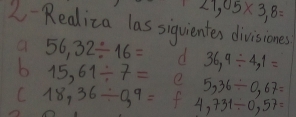 21,05 × 3,8=
2-Realiza las siguientes divisiones
a 56,32÷16=
d 36,9÷4,1=
b 15,61÷7=
e 5,36÷0,67=
c 18,36÷0,9=
f 4,731÷0,57=